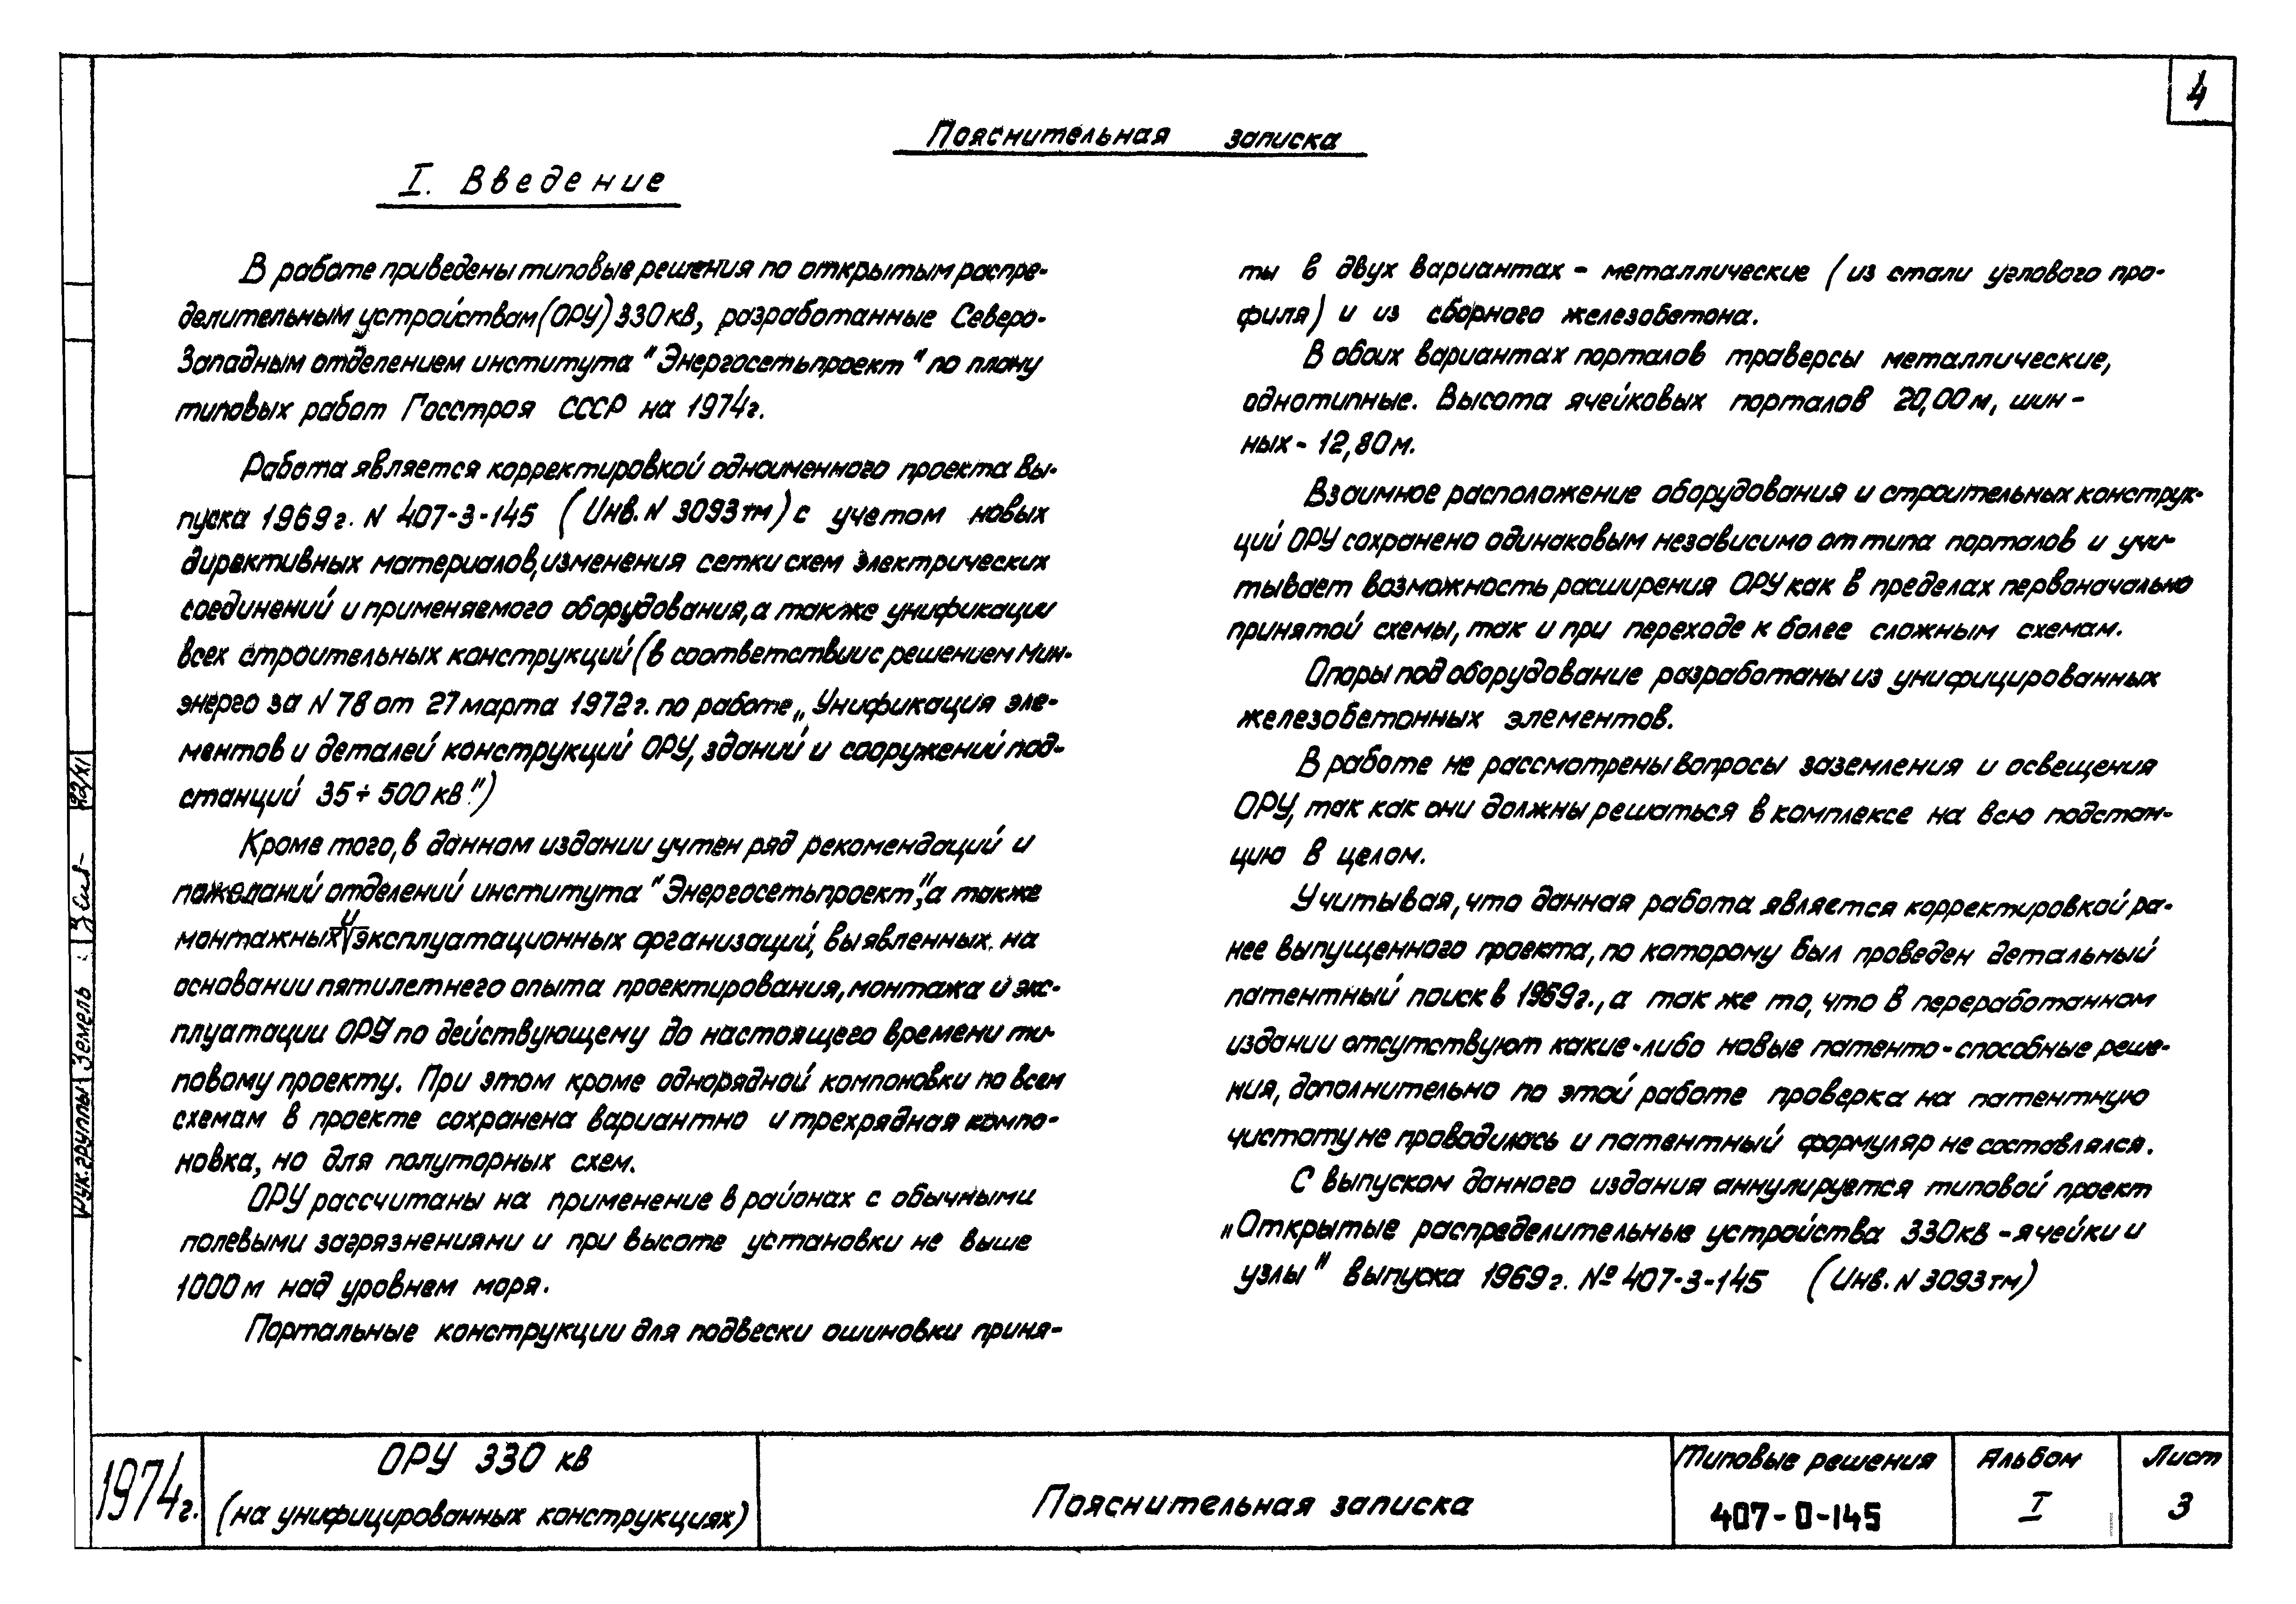 4
Пояснительная записка
I. Введение
В работе приведены типовые решения по открытым распре-
делительным устройствам (ОРУ) 330 кв, разработанные Северо-
Западным отделением института "Энергосетьпроект" по плану
типовых работ Госстроя СССР на 1974г.
Работа является корректировкой одноименного проекта вы-
пуска 1969г. N 407-3-145 (Инв. N 3093тм) с учетом новых
директивных материалов, изменения сетки схем электрических
соединений и применяемого оборудования, а также унификации
всех строительных конструкций (в соответствии с решением Мин-
энерго за N 78 от 27 марта 1972г. по работе „Унификация эле-
ментов и деталей конструкций ОРУ, зданий и сооружений под-
станций 35÷500 кв".)
Кроме того, в данном издании учтен ряд рекомендаций и
пожеланий отделений института "Энергосетьпроект", а также
монтажных и эксплуатационных организаций, выявленных на
основании пятилетнего опыта проектирования, монтажа и экс-
плуатации ОРУ по действующему до настоящего времени ти-
повому проекту. При этом кроме однорядной компоновки по всем
схемам в проекте сохранена вариантно и трехрядная компо-
новка, но для полуторных схем.
ОРУ рассчитаны на применение в районах с обычными
полевыми загрязнениями и при высоте установки не выше
1000м над уровнем моря.
Портальные конструкции для подвески ошиновки приня-
ты в двух вариантах - металлические (из стали углового про-
филя) и из сборного железобетона.
В обоих вариантах порталов траверсы металлические,
однотипные. Высота ячейковых порталов 20,00м, шин-
ных - 12,80м.
Взаимное расположение оборудования и строительных конструк-
ций ОРУ сохранено одинаковым независимо от типа порталов и учи-
тывает возможность расширения ОРУ как в пределах первоначально
принятой схемы, так и при переходе к более сложным схемам.
Опоры под оборудование разработаны из унифицированных
железобетонных элементов.
В работе не рассмотрены вопросы заземления и освещения
ОРУ, так как они должны решаться в комплексе на всю подстан-
цию в целом.
Учитывая, что данная работа является корректировкой ра-
нее выпущенного проекта, по которому был проведен детальный
патентный поиск в 1969г., а так же то, что в переработанном
издании отсутствуют какие-либо новые патенто-способные реше-
ния, дополнительно по этой работе проверка на патентную
чистоту не проводилась и патентный формуляр не составлялся.
С выпуском данного издания аннулируется типовой проект
„Открытые распределительные устройства 330кв - ячейки и
узлы" выпуска 1969г. № 407-3-145 (Инв. N 3093тм)
Рук. группы Земель
1974г.
ОРУ 330 кв
(на унифицированных конструкциях)
Пояснительная записка
Типовые решения
407-0-145
Альбом
I
Лист
3